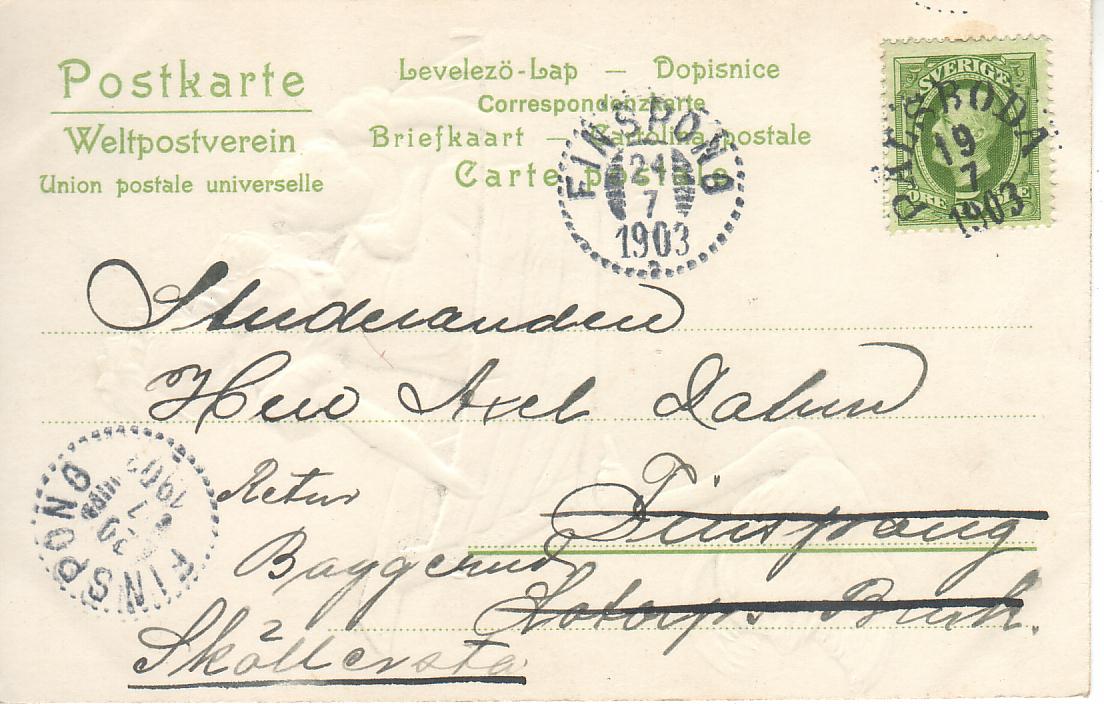 Postkarte
Weltpostverein
Union postale universelle
Levelezö-Lap — Dopisnice
Correspondenzkarte
Briefkaart — Cartolina postale
Carte postale
SVERIGE
PALSBODA
19
7
1903
FINSPONG
24
7
1903
Studeranden
Herr Axel Dalun
Finspong
Retur
Baggerud
Lotorps Bruk.
Skölversta
FINSPONG
30
7
1903